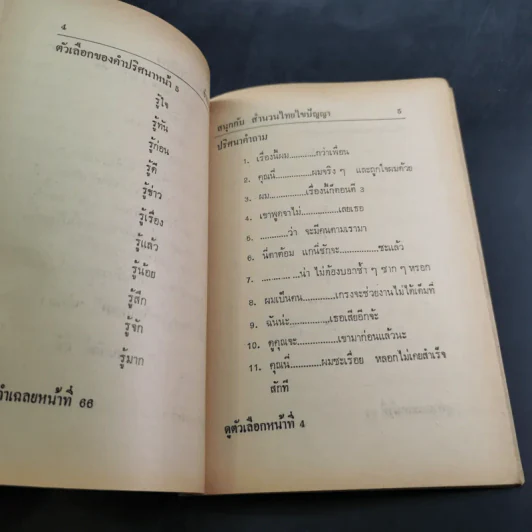 4
ตัวเลือกของคำปริศนาหน้า 5
รู้ใจ
รู้ทัน
รู้ก่อน
รู้ดี
รู้ข่าว
รู้เรื่อง
รู้แล้ว
รู้น้อย
รู้สึก
รู้จัก
รู้มาก
คำเฉลยหน้าที่ 66
สนุกกับ สำนวนไทยไขปัญญา 5
ปริศนาคำถาม
1. เรื่องนี้ผม............กว่าเพื่อน
2. คุณนี่............ผมจริง ๆ และถูกใจผมด้วย
3. ผม............เรื่องนี้ก็ตอนตี 3
4. เขาพูดจาไม่............เลยเธอ
5. ............ว่า จะมีคนตามเรามา
6. นี่ตาต้อม แกนี่ชักจะ............ซะแล้ว
7. ............น่า ไม่ต้องบอกซ้ำ ๆ ซาก ๆ หรอก
8. ผมเป็นคน............เกรงจะช่วยงานไม่ได้เต็มที่
9. ฉันน่ะ............เธอเสียอีกจ้ะ
10. ดูคุณจะ............เขามาก่อนแล้วนะ
11. คุณนี่............ผมซะเรื่อย หลอกไม่เคยสำเร็จ
สักที
ดูตัวเลือกหน้าที่ 4